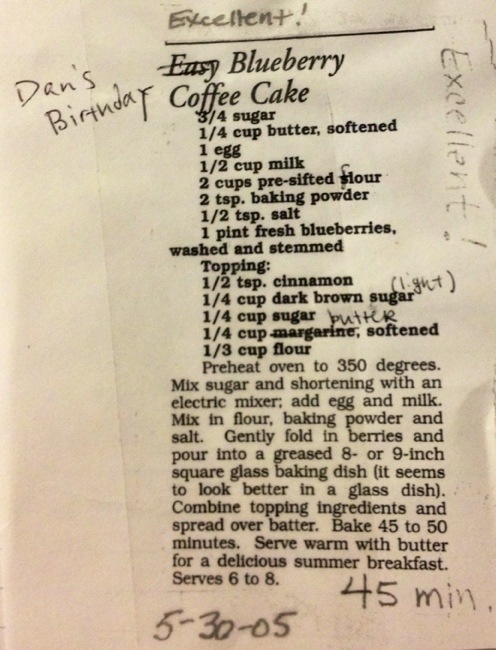 Excellent!
Easy Blueberry
Coffee Cake
Dan's
Birthday
3/4 sugar
1/4 cup butter, softened
1 egg
1/2 cup milk
2 cups pre-sifted flour
2 tsp. baking powder
1/2 tsp. salt
1 pint fresh blueberries,
washed and stemmed
Topping:
1/2 tsp. cinnamon
(light)
1/4 cup dark brown sugar
1/4 cup sugar
butter
1/4 cup margarine, softened
1/3 cup flour
Preheat oven to 350 degrees.
Mix sugar and shortening with an
electric mixer; add egg and milk.
Mix in flour, baking powder and
salt. Gently fold in berries and
pour into a greased 8- or 9-inch
square glass baking dish (it seems
to look better in a glass dish).
Combine topping ingredients and
spread over batter. Bake 45 to 50
minutes. Serve warm with butter
for a delicious summer breakfast.
Serves 6 to 8.
45 min.
5-30-05
Excellent!